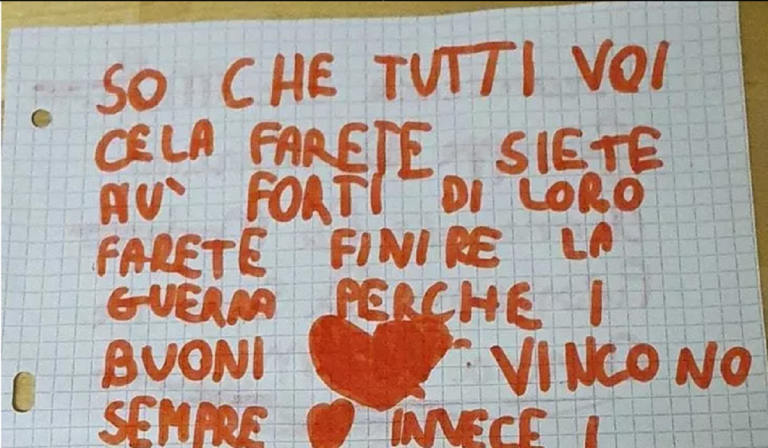 SO CHE TUTTI VOI
CELA FARETE SIETE
PIU' FORTI DI LORO
FARETE FINIRE LA
GUERRA PERCHE I
BUONI VINCONO
SEMPRE INVECE I